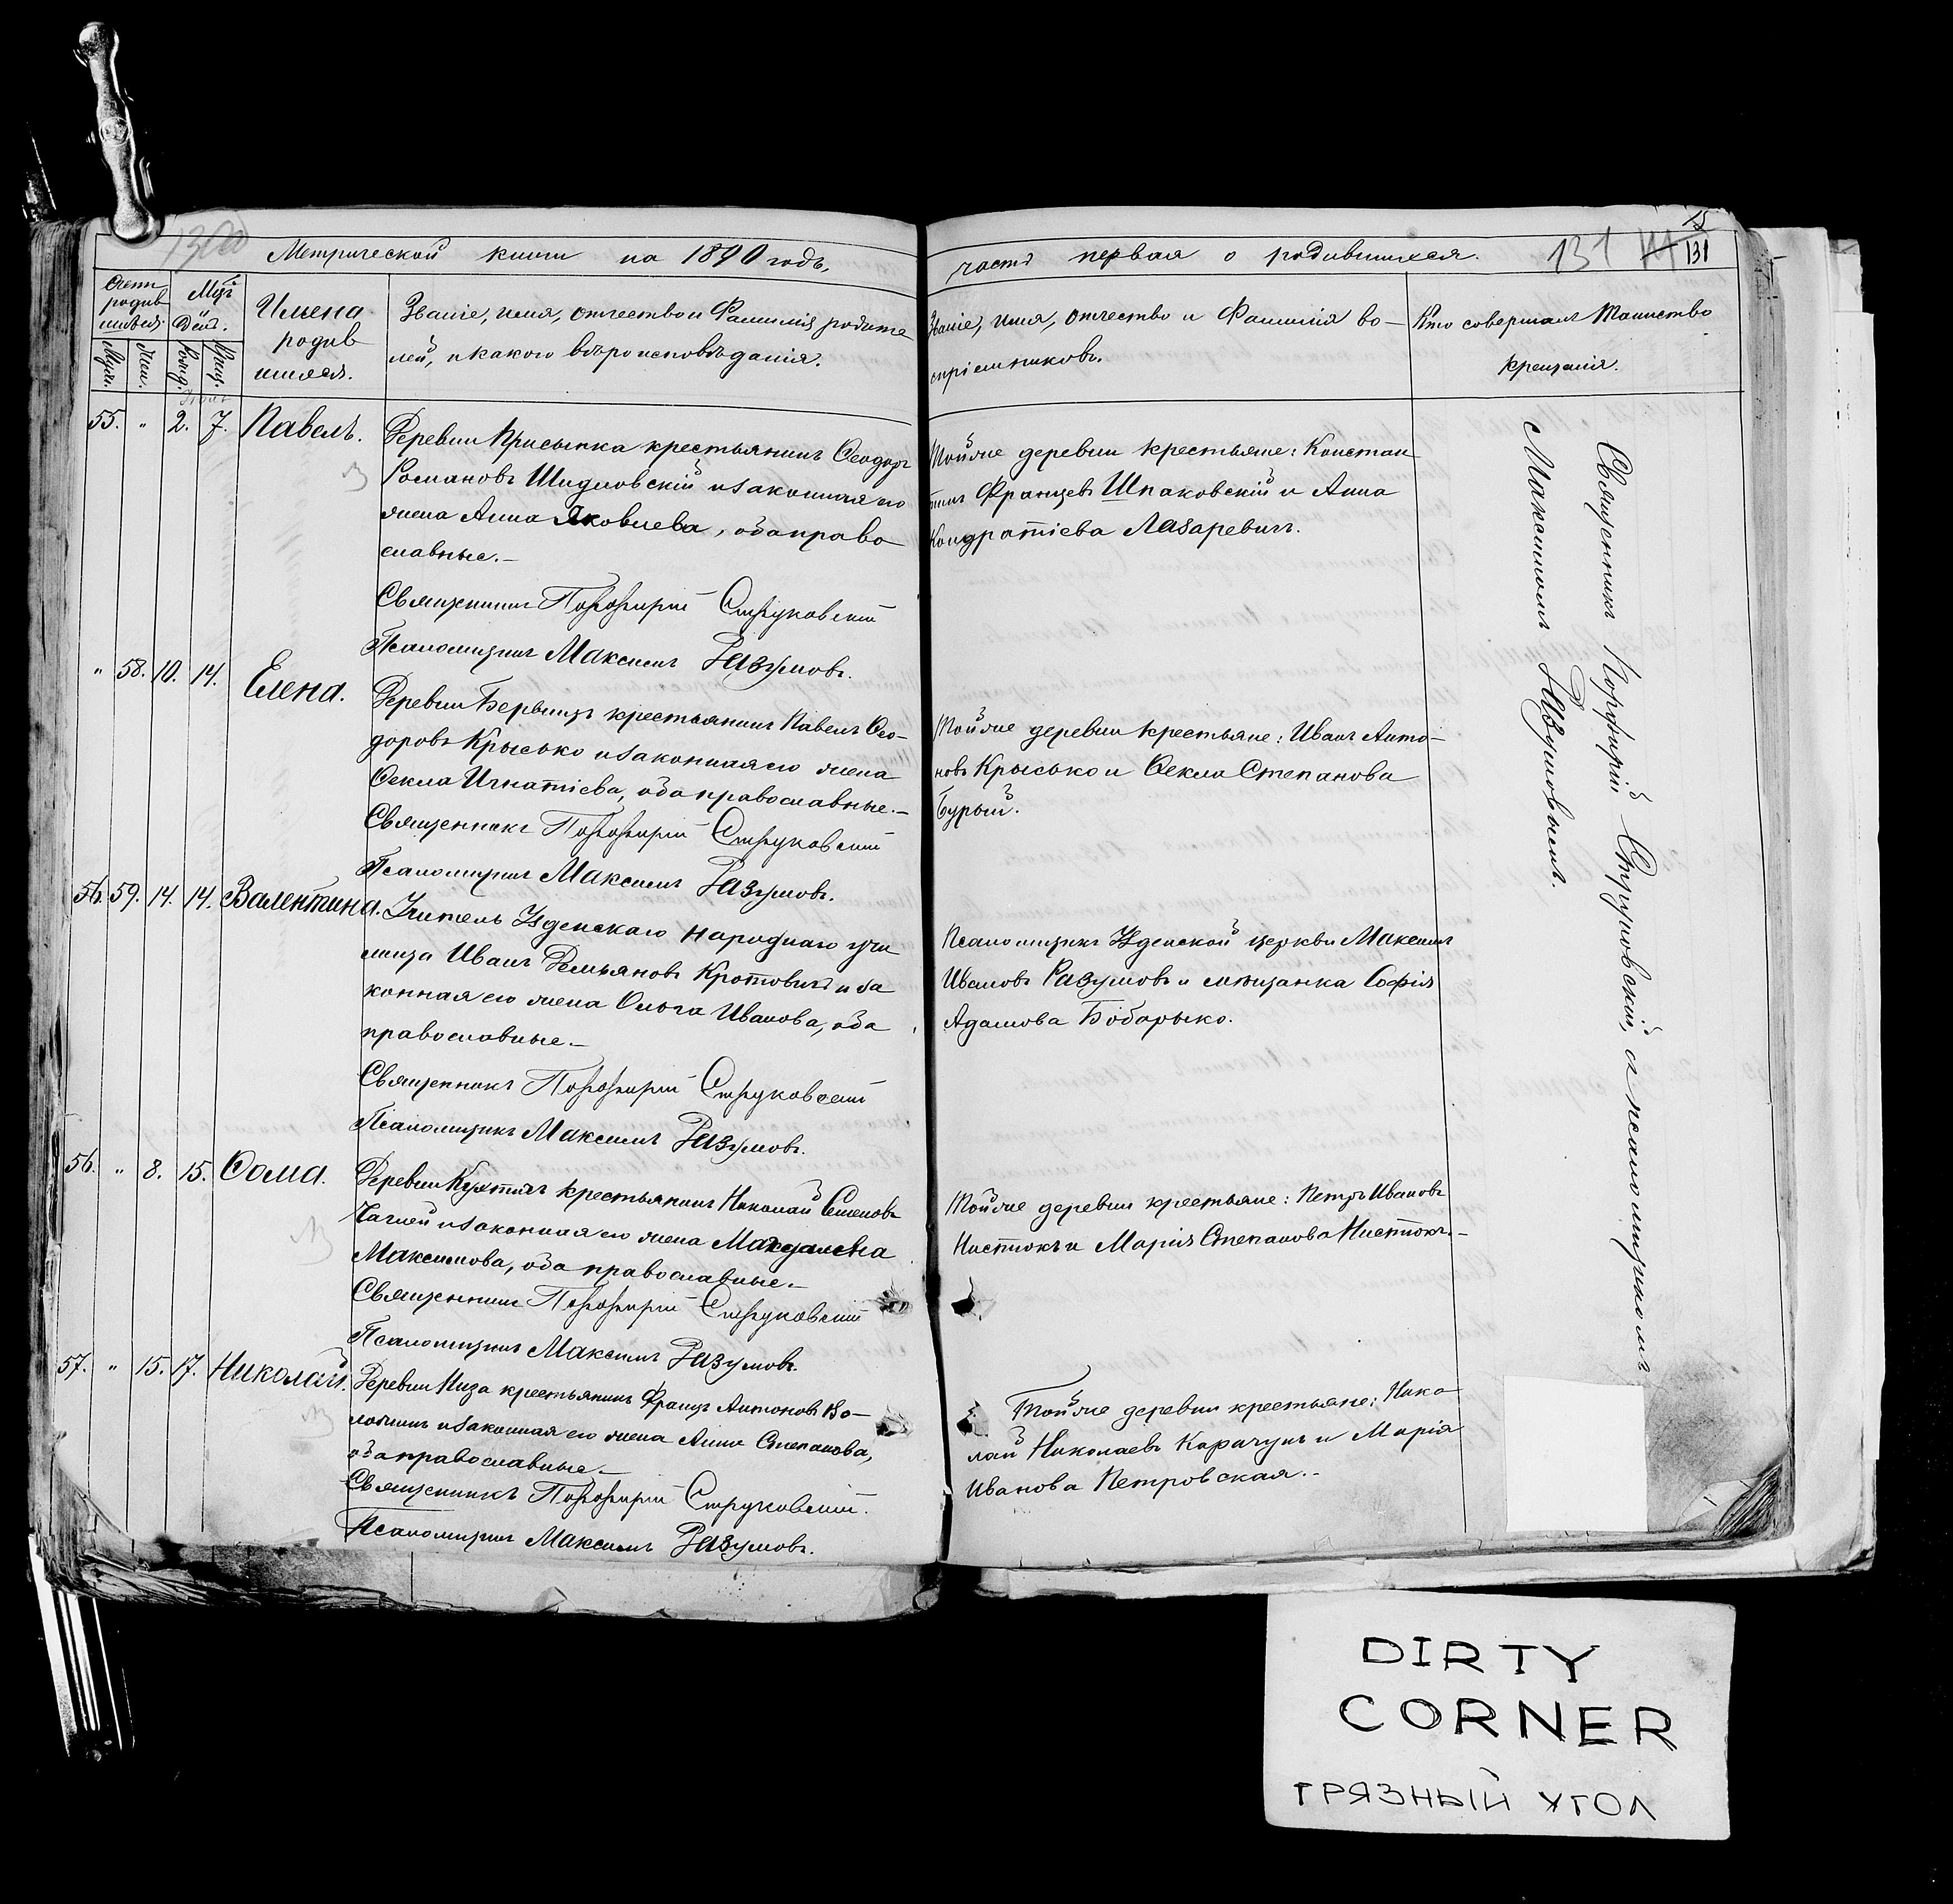 Метрической книги на 1890 годъ,
Счетъ родив шихся.
Мцъ День.
Имена родив шихся.
Званіе, имя, отчество и Фамилія родите
лей, и какого вѣроисповѣданія.
Муж. Жен. Рожд. Крещ.
55. " 2. 7. Павелъ.
Деревни Присынка крестьянинъ Ѳеодоръ
Романовъ Шидловскій и законная его
жена Анна Яковлева, оба право
славные.—
Священникъ Порфирій Струковскій
Псаломщикъ Максимъ Разумовъ.
" 58. 10. 14. Елена.
Деревни крестьянинъ Павелъ Ѳео-
доровъ Крысько и законная его жена
Ѳекла Игнатіева, оба православные.—
Священникъ Порфирій Струковскій
Псаломщикъ Максимъ Разумовъ.
56. 59. 14. 14. Валентина.
Учитель Узденскаго народнаго учи
лища Иванъ Демьяновъ Кротовичъ и за
конная его жена Ольга Иванова, оба
православные.—
Священникъ Порфирій Струковскій
Псаломщикъ Максимъ Разумовъ.
56. " 8. 15. Ѳома.
Деревни крестьянинъ Николай Семеновъ
и законная его жена Магдалена
Максимова, оба православные.—
Священникъ Порфирій Струковскій
Псаломщикъ Максимъ Разумовъ.
57. " 15. 17. Николай.
Деревни Низа крестьянинъ Францъ Антоновъ
и законная его жена Анна Степанова,
оба православные.—
Священникъ Порфирій Струковскій.
Псаломщикъ Максимъ Разумовъ.
часть первая о родившихся.
131
15
131
Званіе, имя, отчество и Фамилія во—
спріемниковъ.
Кто совершалъ Таинство
крещенія.
Той же деревни крестьяне: Констан
тинъ Францевъ Шпаковскій и Анна
Кондратіева Лазаревичъ.
Той же деревни крестьяне: Иванъ Анто—
новъ Крысько и Ѳекла Степанова
Бурый.
Псаломщикъ Узденской церкви Максимъ
Ивановъ Разумовъ и мѣщанка Софія
Адамова Бобарыко.
Той же деревни крестьяне: Петръ Ивановъ
Нистюкъ и Марія Степанова Нистюкъ.—
Той же деревни крестьяне: Нико
лай Николаевъ Карачунъ и Марія
Иванова Петровская.-
Священникъ Порфирій Струковскій, съ псаломщикомъ
Максимомъ Разумовымъ.
DIRTY
CORNER
ГРЯЗНЫЙ УГОЛ